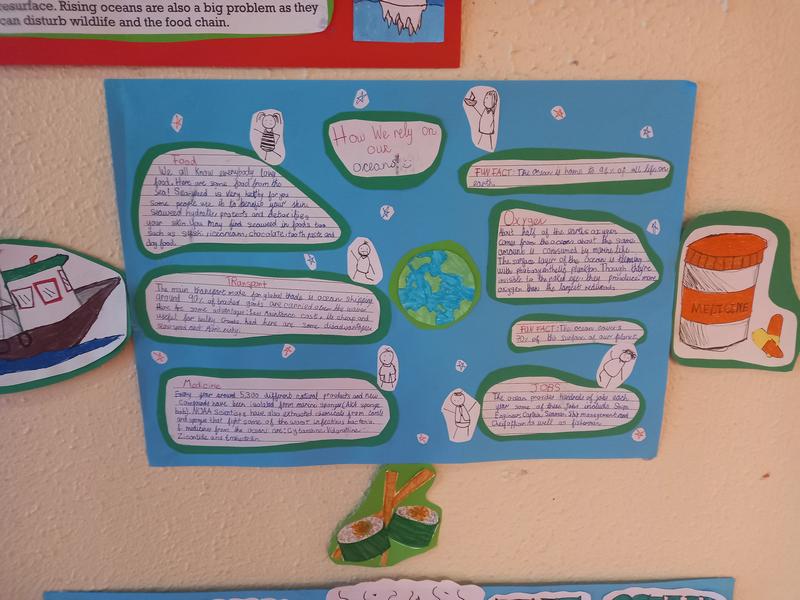 resurface. Rising oceans are also a big problem as they
can disturb wildlife and the food chain.
How We rely on
our
oceans!
Food
We all know everybody love
food. Here are some food from the
Sea! Seaweed is very helthy for you
Some people use it to benefit your skin.
Seaweed hydrates protects and detoxifies
your skin you may find seaweed in foods too
such as sushi, icecream, chocolate, tooth paste and
dog food.
Transport
The main transport mode for global trade is ocean shipping
around 90% of traded goods are carried above the waves.
Here are some advantages: Low maintance cost & its cheap and
useful for bulky Goods. And here are some disadvantages
slow speed and More risky.
Medicine
Every year around 5,300 different natural products and New
Compounds have been isolated from marine sponges
NOAA Scientists have also extracted chemicals from corals
and sponge that fight some of the worst infectious bacteria.
5 medicines from the ocean are: Cytarabine, Vidarabine
Ziconotide and
FUN FACT: The ocean is home to 94% of all life on
earth.
Oxygen
About half of the earths oxygen
comes from the ocean about the same
amount is consumed by marine life.
The surface layer of the ocean is
with photosynthetic plankton. Though they're
invisible to the naked eye, they produce more
oxygen than the largest redwoods.
FUN FACT: The ocean covers
70% of the surface of our planet.
JOBS
The ocean provides hundreds of jobs each
year some of these jobs include Ships
Engineer, Captain, Seaman, Ship management and
Chief officer as well as fisherman.
MEDICINE